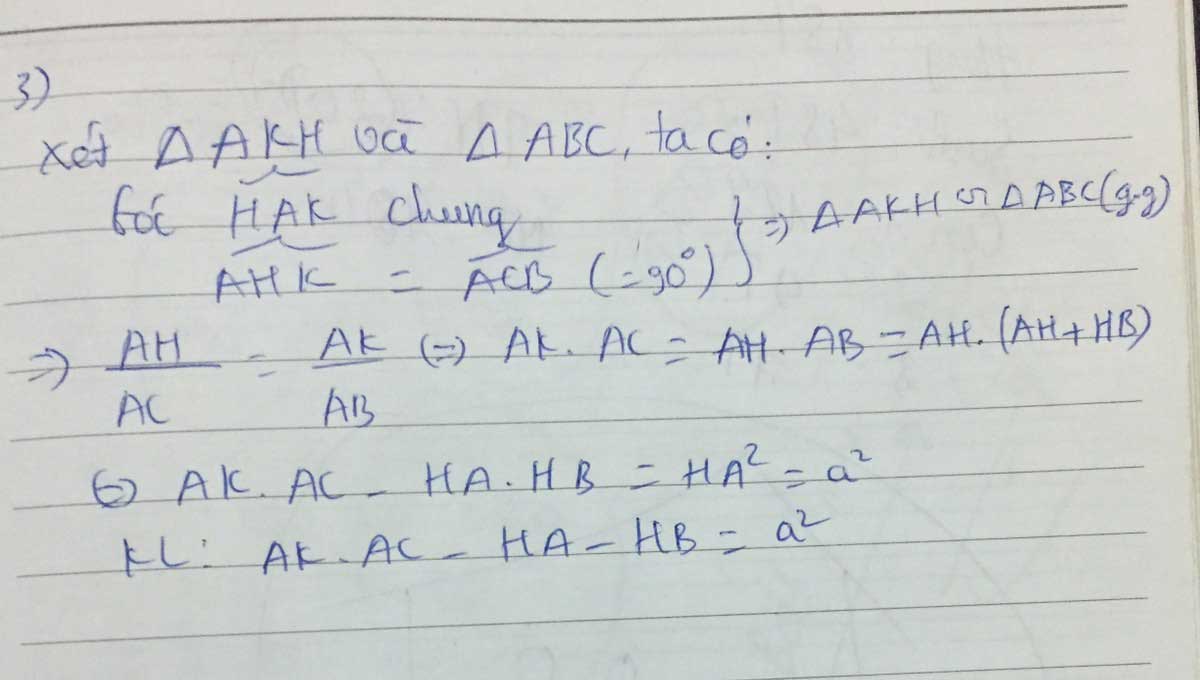 3)
Xét Δ AKH và Δ ABC, ta có:
Góc HAK chung
AHK = ACB (=90°) } => Δ AKH ∽ Δ ABC (g.g)
=> AH/AC = AK/AB (=) AK. AC = AH. AB = AH. (AH + HB)
(=) AK. AC - HA. HB = HA² = a²
KL: AK. AC - HA - HB = a²